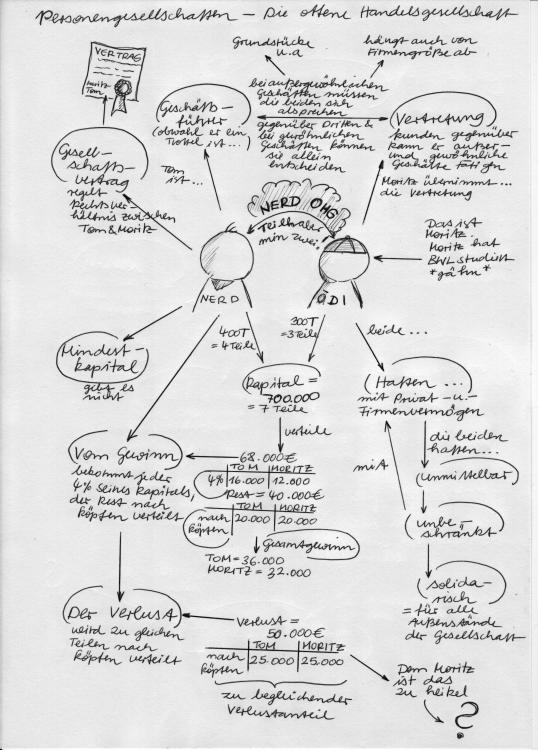 Personengesellschaften – Die offene Handelsgesellschaft
VERTRAG
Moritz
Tom
Grundstücke
u.a
hängt auch von
Firmengröße ab
bei außergewöhnlichen
Geschäften müssen
die beiden sich
absprechen
gegenüber Dritten &
bei gewöhnlichen
Geschäften können
sie allein
entscheiden
Geschäfts-
führer
(obwohl er ein
Trottel ist...)
Tom
ist...
Vertretung
Kunden gegenüber
kann er außer-
und gewöhnliche
Geschäfte tätigen
Moritz übernimmt...
die Vertretung
Gesell-
schafts-
vertrag
regelt
Rechtsver-
hältnis zwischen
Tom & Moritz
NERD OHG
Teilhaber
min zwei!
Das ist
Moritz.
Moritz hat
BWL studiert
*gähn*
NERD
ÖDI
400T
=4 Teile
300T
=3 Teile
beide...
Mindest-
kapital
gibt es
nicht
Kapital =
700.000
= 7 Teile
verteile
(Haften...
mit Privat -u-
Firmenvermögen
die beiden
haften...
mit
(unmittelbar)
(unbe-
schränkt
(solida-
risch
= für alle
Außenstände
der Gesellschaft
Vom Gewinn
bekommt jeder
4% seines Kapitals,
der Rest nach
Köpfen verteilt
68.000€
TOM MORITZ
4% 16.000 12.000
Rest = 40.000€
TOM MORITZ
nach
Köpfen 20.000 20.000
Gesamtgewinn
TOM = 36.000
MORITZ = 32.000
Der Verlust
wird zu gleichen
Teilen nach
Köpfen verteilt
Verlust =
50.000€
TOM MORITZ
nach
Köpfen 25.000 25.000
zu begleichender
Verlustanteil
Dem Moritz
ist das
zu heikel
?